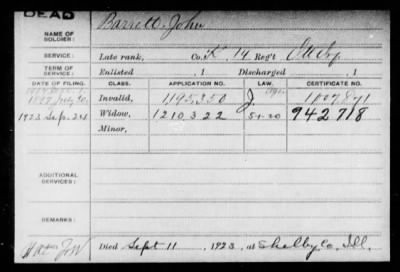 DEAD
NAME OF
SOLDIER:
Barrett, John
SERVICE:
Late rank, Co. K, 14 Reg't
TERM OF
SERVICE:
Enlisted , 1 Discharged , 1
DATE OF FILING. CLASS. APPLICATION NO. LAW. CERTIFICATE NO.
Invalid, 1195350 J.
1923 Sep. 24 Widow, 1210322 5-1-20 942718
Minor,
ADDITIONAL
SERVICES:
REMARKS:
Died Sept 11, 1923, at Shelby Co. Ill.